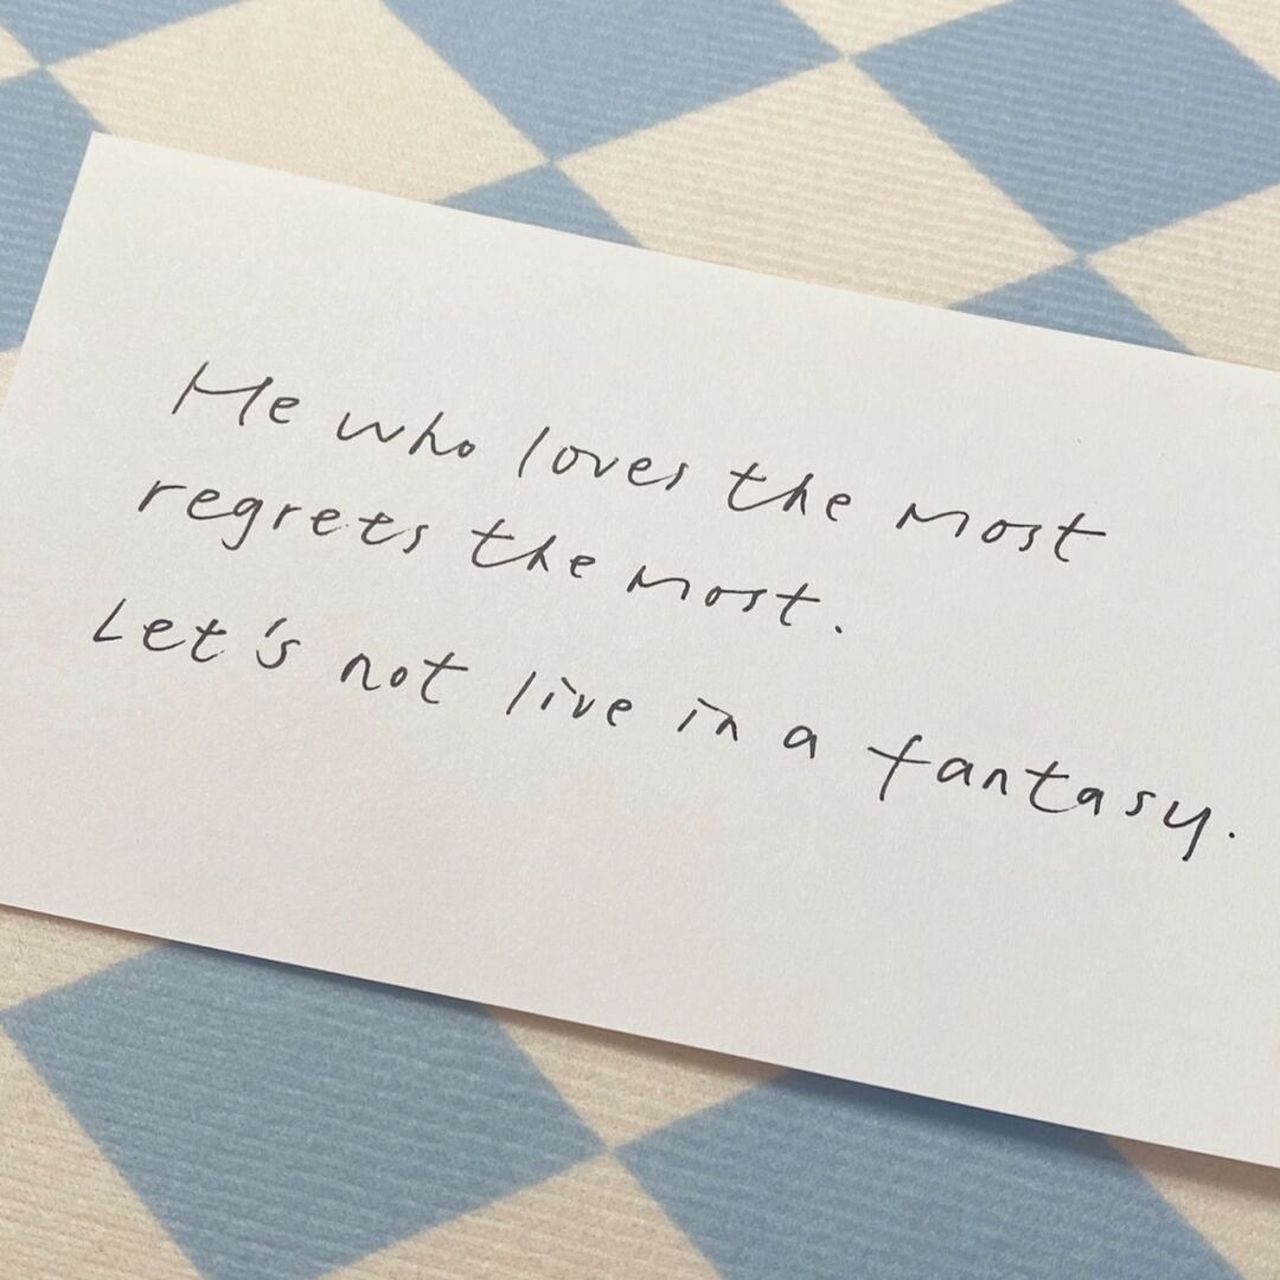 He who loves the most
regrets the most.
Let's not live in a fantasy.